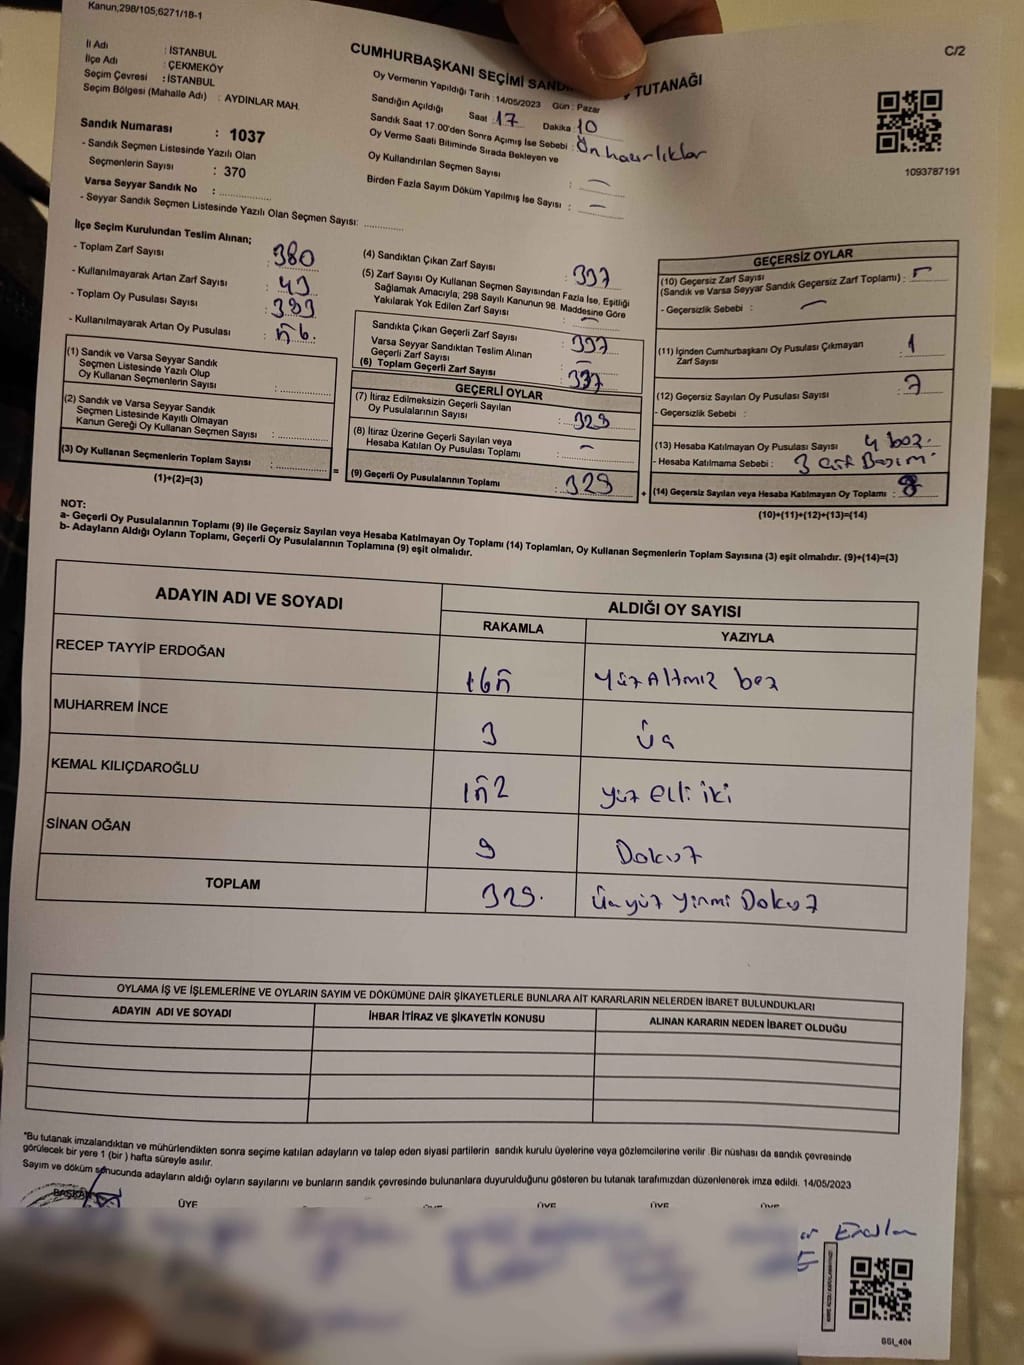 Kanun,298/105;6271/18-1
C/2
İl Adı : İSTANBUL
İlçe Adı : ÇEKMEKÖY
Seçim Çevresi : İSTANBUL
Seçim Bölgesi (Mahalle Adı) : AYDINLAR MAH.
Sandık Numarası : 1037
- Sandık Seçmen Listesinde Yazılı Olan
Seçmenlerin Sayısı : 370
Varsa Seyyar Sandık No :
- Seyyar Sandık Seçmen Listesinde Yazılı Olan Seçmen Sayısı:
CUMHURBAŞKANI SEÇİMİ TUTANAĞI
Oy Vermenin Yapıldığı Tarih : 14/05/2023 Gün : Pazar
Sandığın Açıldığı Saat 17 Dakika 10
Sandık Saat 17.00'den Sonra Açımış İse Sebebi : Ön hazırlıklar
Oy Verme Saati Bitiminde Sırada Bekleyen ve
Oy Kullandırılan Seçmen Sayısı : —
Birden Fazla Sayım Döküm Yapılmış İse Sayısı : —
1093787191
İlçe Seçim Kurulundan Teslim Alınan;
- Toplam Zarf Sayısı : 380
- Kullanılmayarak Artan Zarf Sayısı : 43
- Toplam Oy Pusulası Sayısı : 383
- Kullanılmayarak Artan Oy Pusulası :
(1) Sandık ve Varsa Seyyar Sandık
Seçmen Listesinde Yazılı Olup
Oy Kullanan Seçmenlerin Sayısı :
(2) Sandık ve Varsa Seyyar Sandık
Seçmen Listesinde Kayıtlı Olmayan
Kanun Gereği Oy Kullanan Seçmen Sayısı :
(3) Oy Kullanan Seçmenlerin Toplam Sayısı :
(1)+(2)=(3)
=
(4) Sandıktan Çıkan Zarf Sayısı : 337
(5) Zarf Sayısı Oy Kullanan Seçmen Sayısından Fazla İse, Eşitliği
Sağlamak Amacıyla, 298 Sayılı Kanunun 98. Maddesine Göre
Yakılarak Yok Edilen Zarf Sayısı : —
Sandıkta Çıkan Geçerli Zarf Sayısı : 337
Varsa Seyyar Sandıktan Teslim Alınan
Geçerli Zarf Sayısı : —
(6) Toplam Geçerli Zarf Sayısı : 337
GEÇERLİ OYLAR
(7) İtiraz Edilmeksizin Geçerli Sayılan
Oy Pusulalarının Sayısı : 329
(8) İtiraz Üzerine Geçerli Sayılan veya
Hesaba Katılan Oy Pusulası Toplamı : —
(9) Geçerli Oy Pusulalarının Toplamı : 329
+
GEÇERSİZ OYLAR
(10) Geçersiz Zarf Sayısı
(Sandık ve Varsa Seyyar Sandık Geçersiz Zarf Toplamı) : —
- Geçersizlik Sebebi : —
(11) İçinden Cumhurbaşkanı Oy Pusulası Çıkmayan
Zarf Sayısı : 1
(12) Geçersiz Sayılan Oy Pusulası Sayısı : 7
- Geçersizlik Sebebi :
(13) Hesaba Katılmayan Oy Pusulası Sayısı 4 boş.
- Hesaba Katılmama Sebebi : 3 çift Basım.
(14) Geçersiz Sayılan veya Hesaba Katılmayan Oy Toplamı : 8
(10)+(11)+(12)+(13)=(14)
NOT:
a- Geçerli Oy Pusulalarının Toplamı (9) ile Geçersiz Sayılan veya Hesaba Katılmayan Oy Toplamı (14) Toplamları, Oy Kullanan Seçmenlerin Toplam Sayısına (3) eşit olmalıdır. (9)+(14)=(3)
b- Adayların Aldığı Oyların Toplamı, Geçerli Oy Pusulalarının Toplamına (9) eşit olmalıdır.
ADAYIN ADI VE SOYADI
ALDIĞI OY SAYISI
RAKAMLA YAZIYLA
RECEP TAYYİP ERDOĞAN 165 Yüz Altmış beş
MUHARREM İNCE 3 Üç
KEMAL KILIÇDAROĞLU 152 Yüz elli iki
SİNAN OĞAN 9 Dokuz
TOPLAM 329. Üçyüz Yirmi Dokuz
OYLAMA İŞ VE İŞLEMLERİNE VE OYLARIN SAYIM VE DÖKÜMÜNE DAİR ŞİKAYETLERLE BUNLARA AİT KARARLARIN NELERDEN İBARET BULUNDUKLARI
ADAYIN ADI VE SOYADI İHBAR İTİRAZ VE ŞİKAYETİN KONUSU ALINAN KARARIN NEDEN İBARET OLDUĞU
*Bu tutanak imzalandıktan ve mühürlendikten sonra seçime katılan adayların ve talep eden siyasi partilerin sandık kurulu üyelerine veya gözlemcilerine verilir. Bir nüshası da sandık çevresinde
görülecek bir yere 1 (bir ) hafta süreyle asılır.
Sayım ve döküm sonucunda adayların aldığı oyların sayılarını ve bunların sandık çevresinde bulunanlara duyurulduğunu gösteren bu tutanak tarafımızdan düzenlenerek imza edildi. 14/05/2023
BAŞKAN ÜYE ÜYE ÜYE ÜYE ÜYE
GSI_404